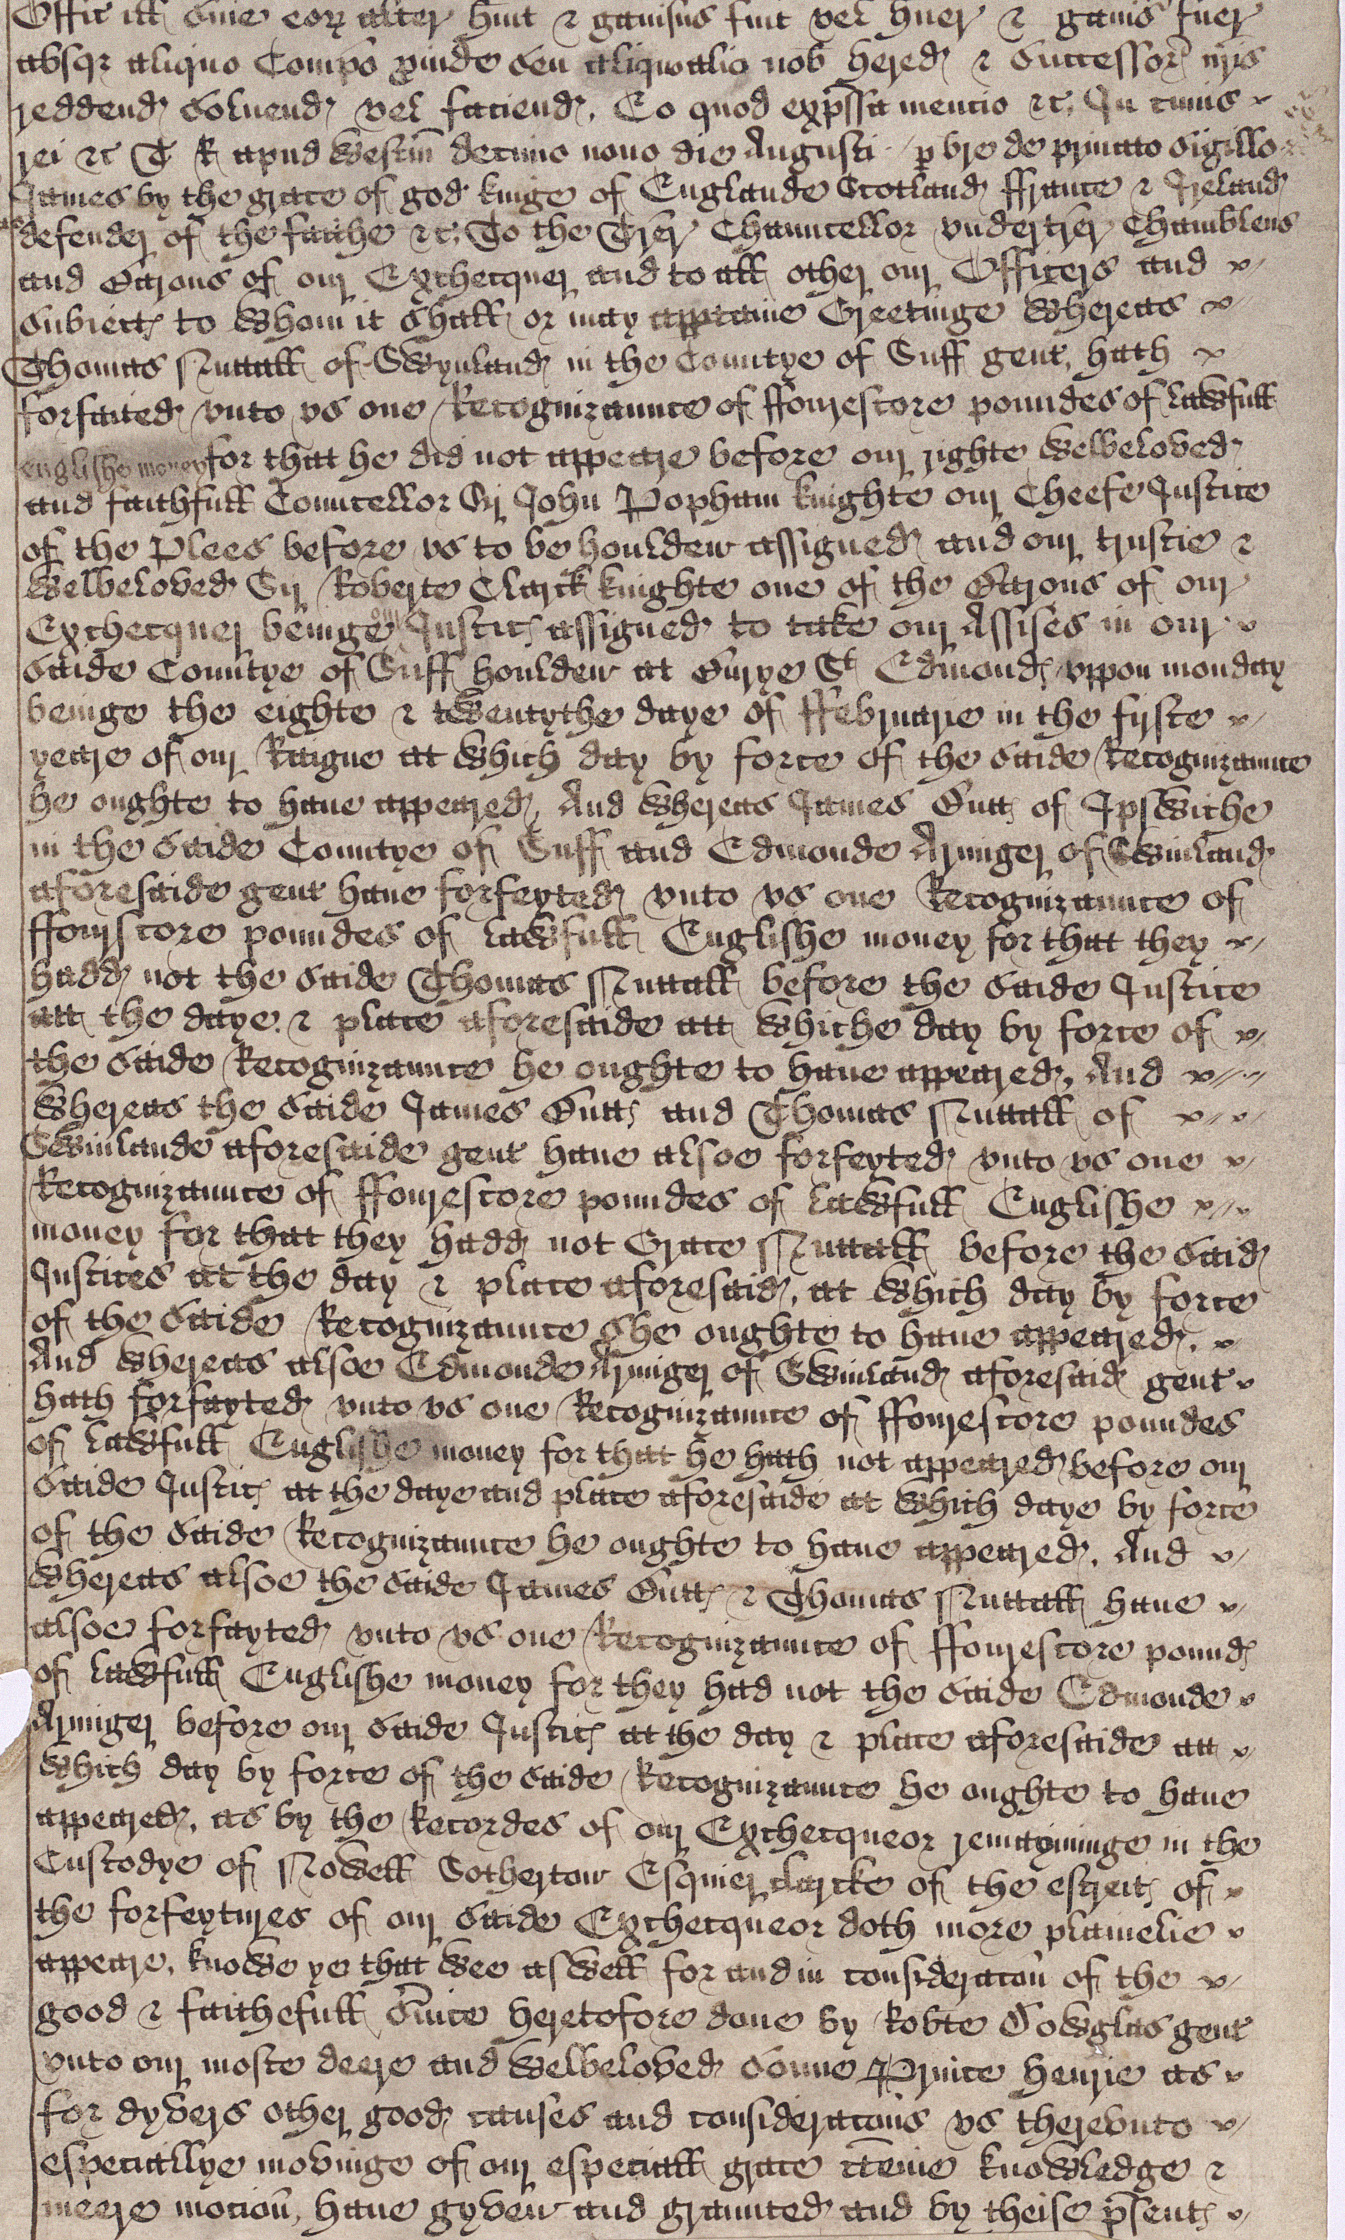 Offic ill sive eorz alter huit & gavisus fuit vel huer & gavis fuer
absqz aliquo Compo proinde seu aliquo alio nob hered & Successor nris
reddend solvend vel faciend. Eo quod expressa mencio &c. In cuius
rei &c T R apud Westm decimo nono die Augusti p bre de privato Sigillo
James by the grace of god kinge of Englande Scotland ffrance & Ireland
defender of the faithe &c. To the Trer Chauncellor undertrer Chamblens
and Barons of our Exchecquer and to all other our Officers and
Subiects to whom it shall or may apptaine Greetinge whereas
Thomas Nuttall of Swynland in the Countye of Suff gent. hath
forfaited vnto vs one Recognizaunce of ffourescore poundes of lawfull
englishe money for that he did not appeare before our righte welbeloved
and faithfull Councellor Sir John Popham knighte our Cheefe Justice
of the Plees before vs to be houlden assigned and our trustie &
welbeloved Sir Roberte Clarck knighte one of the Barons of our
Exchecquer beinge our Justics assigned to take our Assises in our
saide Countye of Suff houlden at Burye St Edmonds vppon monday
beinge the eighte & twentythe daye of ffebruarie in the firste
yeare of our Raigne at which day by force of the saide Recognizaunce
he oughte to have appeared. And whereas James Butts of Ipswiche
in the saide Countye of Suff and Edmonde Armiger of Swinland
aforesaide gent have forfeyted vnto vs one Recognizaunce of
ffourscore poundes of lawfull Englishe money for that they
hadd not the saide Thomas Nuttall before the saide Justice
att the daye & place aforesaide att whiche day by force of
the saide Recognizaunce he oughte to have appeared. And
whereas the saide James Butts and Thomas Nuttall of
Swinlande aforesaide gent have alsoe forfeyted vnto vs one
Recognizaunce of ffourescore poundes of lawfull Englishe
money for that they hadd not Grace Nuttall before the said
Justices at the day & place aforesaid, at which day by force
of the saide Recognizaunce she oughte to have appeared.
And whereas alsoe Edmonde Armiger of Swinland aforesaid gent
hath forfayted vnto vs one Recognizaunce of ffourescore poundes
of lawfull Englishe money for that he hath not appeared before our
saide Justics at the daye and place aforesaide at which daye by force
of the saide Recognizaunce he oughte to have appeared. And
whereas alsoe the saide James Butts & Thomas Nuttall have
alsoe forfayted vnto vs one Recognizaunce of ffourescore pounds
of lawfull Englishe money for they had not the saide Edmonde
Armiger before our saide Justics at the day & place aforesaide att
which day by force of the saide Recognizaunce he oughte to have
appeared, as by the Recordes of our Exchecqueor remayninge in the
Custodye of Nowell Sotherton Esquier Clarcke of the estreits of
the forfeytures of our saide Exchecqueor doth more plainelie
appeare. knowe ye that wee aswell for and in consideracon of the
good & faithefull Service heretofore done by Robte Dowglas gent
vnto our moste deere and welbeloved Sonne Prince Henrie as
for dyvers other good causes and consideracons vs therevnto
especiallye movinge of our especiall grace certeine knowledge &
meere motion, have gyven and graunted and by theise presents